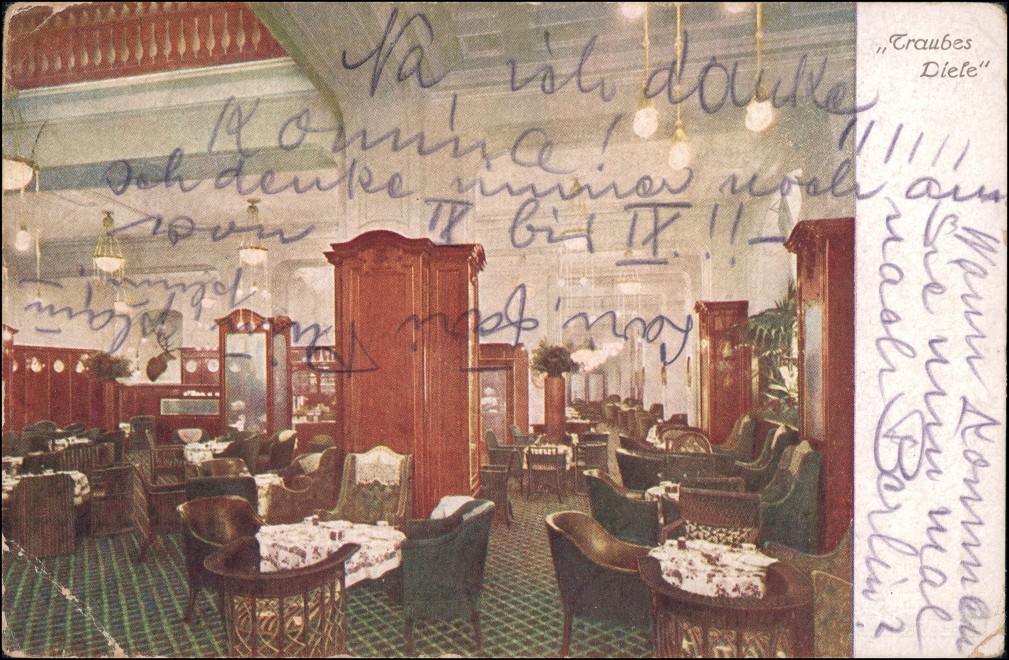 „Traubes
Diele“
Na, ich danke
Komme! !!!!!
Ich denke immer noch an
von IV bis IX!! –
Wann kommen
Sie nun mal
nach Berlin?